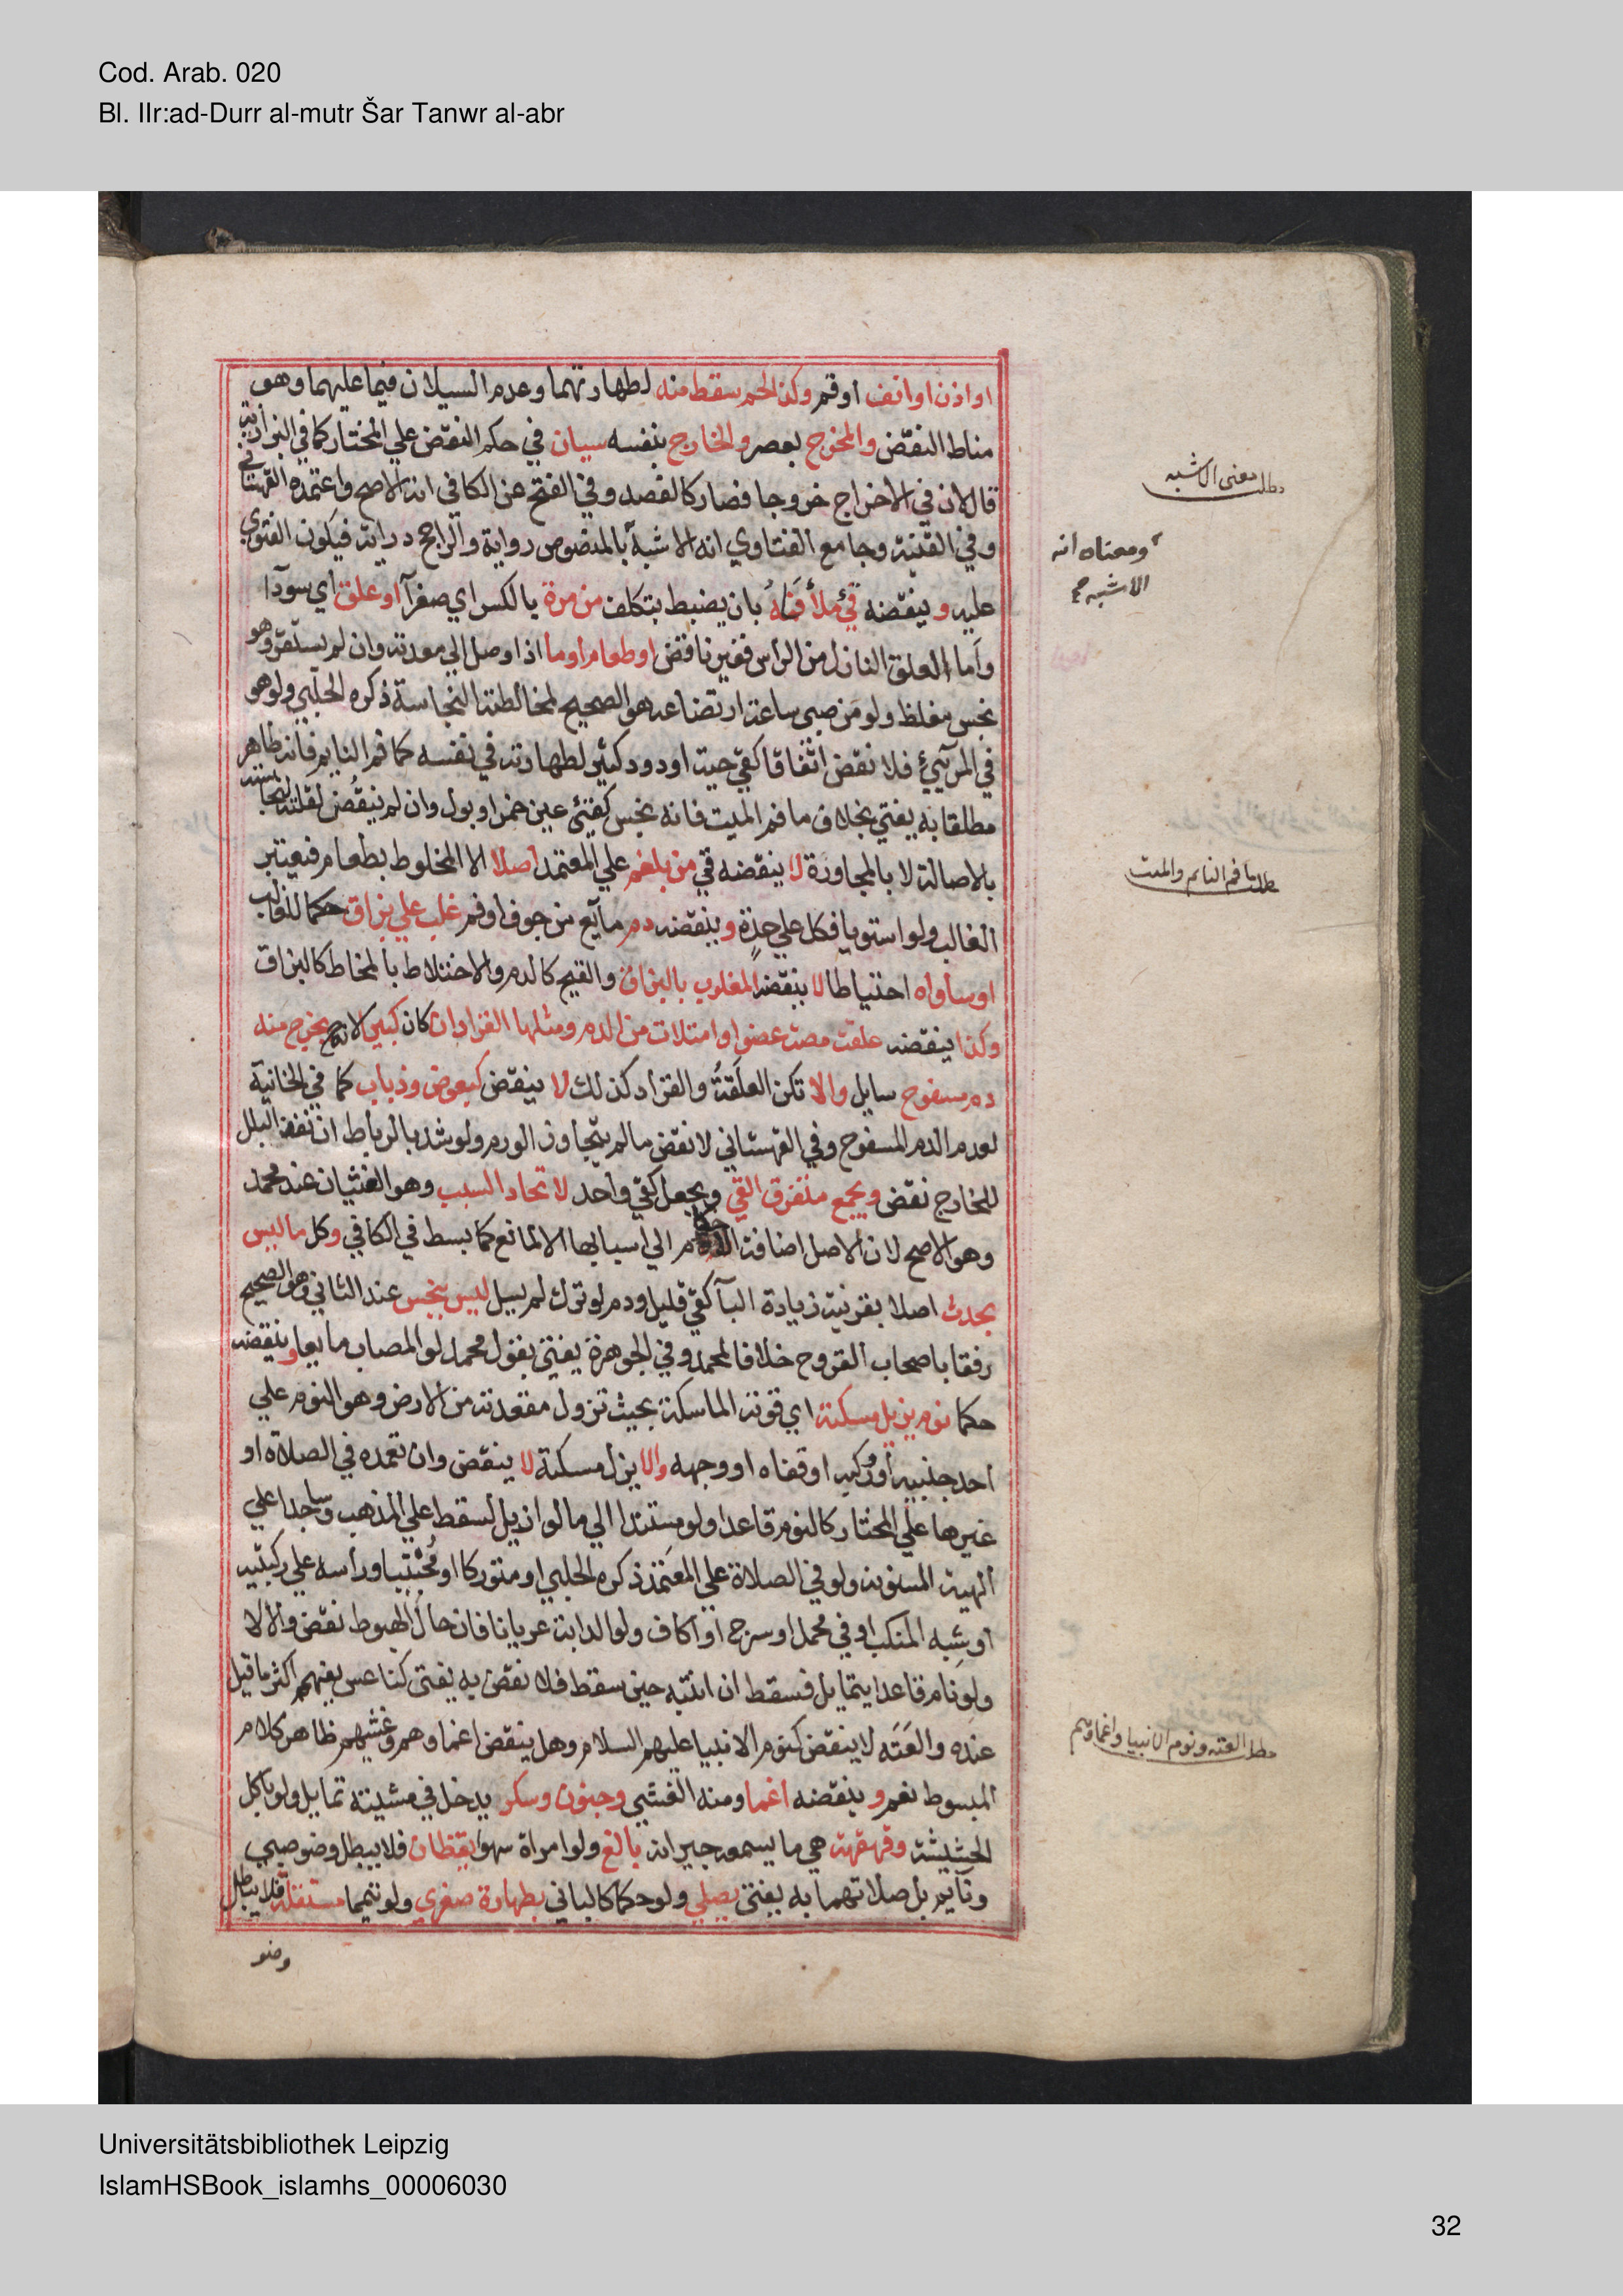 Cod. Arab. 020
Bl. IIr:ad-Durr al-mutr Šar Tanwr al-abr
او اذن او انف او فم وكذا لحم سقط منه لطهارتهما وعدم السيلان فيما عليهما وهو
مناط النقض والمخرج بعصر والخارج بنفسه سيان في حكم النقض علي المختار كما في البزازية
قال لان في الاخراج خروجا فصار كالفصد وفي الفتح عن الكافي انه الاصح واعتمده القهستاني
وفي القنية وجامع الفتاوي انه الاشبه بالمنصوص رواية والراجح دراية فيكون الفتوي
عليه وينقضه قئ ملأ فاه بان يضبط بتكلف من مرة بالكسر اي صفرآ او علق اي سودآ
واما العلق النازل من الراس فغير ناقض او طعام او ما اذا وصل الي معدته وان لم يستقر وهو
نجس مغلظ ولو من صبي ساعة ارتضاعه هو الصحيح لمخالطة النجاسة ذكره الحلبي ولو هو
في المرئ فلا نقض اتفاقا كقي حية او دود كثير لطهارته في نفسه كما فم النايم فانه طاهر
مطلقا به يفتي بخلاف ما فم الميت فانه نجس كقئ عين خمر او بول وان لم ينقض لقلته لنجاسته
بالاصالة لا بالمجاورة لا ينقضه قي من بلغم علي المعتمد اصلا الا المخلوط بطعام فيعتبر
الغالب ولو استويا فكل علي حدة وينقضه دم مايع من جوف او فم غلب علي بزاق حكما للغالب
او ساواه احتياطا لا ينقضه المغلوب بالبزاق والقيح كالدم والاختلاط بالمخاط كالبزاق
وكذا ينقضه علقة مصت عضوا وامتلات من الدم ومثلها القراد ان كان كبيرا لانه ح يخرج منه
دم مسفوح سايل والا تكن العلقة والقراد كذلك لا ينقض كبعوض وذباب كما في الخانية
لعدم الدم المسفوح وفي القهستاني لا نقض ما لم يتجاوز الورم ولو شد بالرباط ان نفذ البلل
للخارج نقض ويجمع متفرق القي ويجعل كقي واحد لاتحاد السبب وهو الغثيان عند محمد
وهو الاصح لان الاصل اضافة الاحكام الي اسبابها الا لمانع كما بسط في الكافي وكل ما ليس
بحدث اصلا بقرينة زيادة البآ كقي قليل ودم لو ترك لم يسيل ليس بنجس عند الثاني وهو الصحيح
رفقا باصحاب القروح خلافا لمحمد وفي الجوهرة يفتي بقول محمد لو المصاب مايعا وينقضه
حكما نوم يزيل مسكته اي قوته الماسكة بحيث تزول مقعدته من الارض وهو النوم علي
احد جنبيه او وركيه او قفاه او وجهه والا يزل مسكته لا ينقض وان تعمده في الصلاة او
غيرها علي المختار كالنوم قاعدا ولو مستندا الي ما لو ازيل لسقط علي المذهب وساجدا علي
الهيئة المسنونة ولو في الصلاة علي المعتمد ذكره الحلبي او متوركا او محتبيا وراسه علي ركبتيه
او شبه المنكب او في محمل او سرج او اكاف ولو الدابة عريانا فان حال الهبوط نقض والا لا
ولو نام قاعدا يتمايل فسقط ان انتبه حين سقط فلا نقض به يفتي كناعس يفهم اكثر ما قيل
عنده والعته لا ينقض كنوم الانبيا عليهم السلام وهل ينقض اغماوهم وغشيهم ظاهر كلام
المبسوط نعم وينقضه اغما ومنه الغشي وجنون وسكر يدخل في مشيته تمايل ولو باكل
الحشيشة وقهقهة هي ما يسمعه جيرانه بالغ ولو امراة سهوا يقظان فلا يبطل وضو صبي
ونآيم بل صلاتهما به يفتي يصلي ولو حكما كالباني بطهارة صغري ولو تيمما مستقلة فلا يبطل
وضو
مطلب معني الاشبه
ومعناه انه
الاشبه
مطلب ما فم النايم والميت
مطلب العته ونوم الانبيا واغماوهم
Universitätsbibliothek Leipzig
IslamHSBook_islamhs_00006030
32